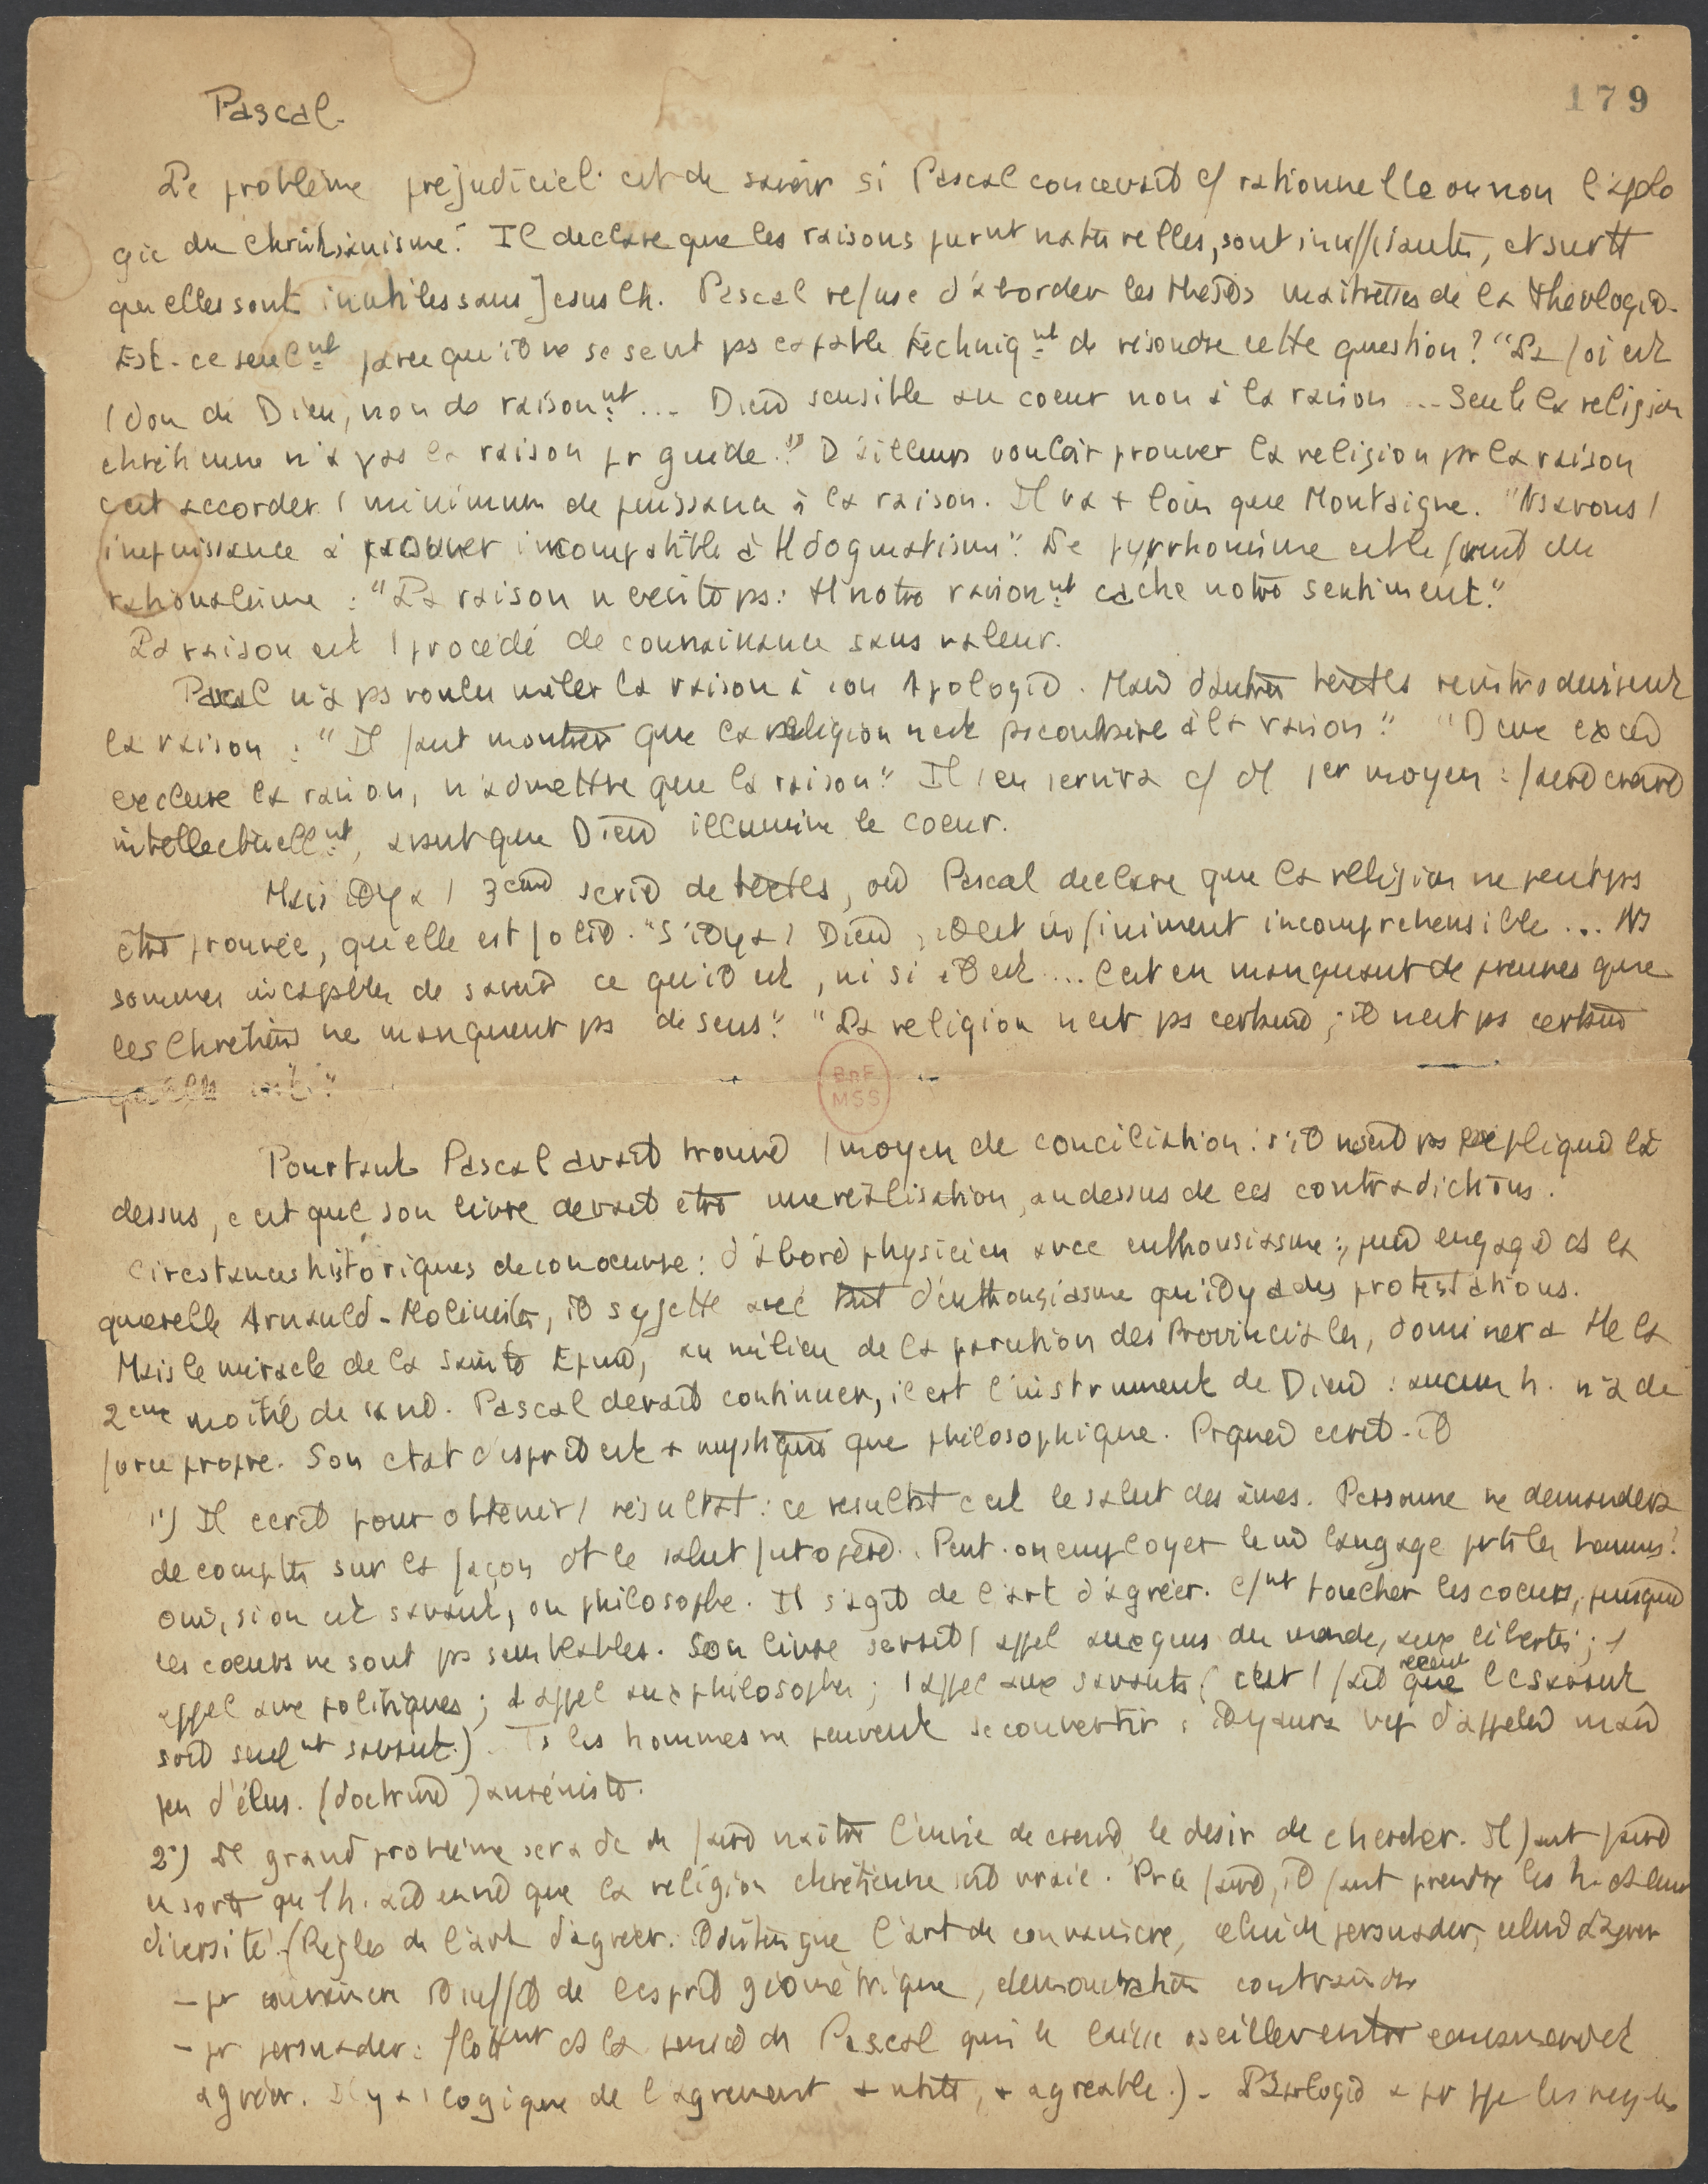 179
Pascal.
Le problème préjudiciel est de savoir si Pascal concevait c/ rationnelle ou non l'apolo
gie du christianisme. Il declare que les raisons purnt naturelles, sont insuffisantes, et surtt
qu'elles sont inutiles sans Jesus Ch. Pascal refuse d'aborder les thèses maitresses de la théologie.
Est-ce seulnt parce qu'il ne se sent ps capable techniqnt de résoudre cette question? "La foi est
1 don de Dieu, non de raisonnt... Dieu sensible au coeur non à la raison... Seule la religion
chretienne n'a pas la raison pr guide." D'ailleurs vouloir prouver la religion pr la raison
c'est accorder 1 minimum de puissance à la raison. Il va + loin que Montaigne. "Ns avons 1
impuissance à prouver incompatible à tt dogmatisme". Le pyrrhonisme est le fruit du
rationalisme : "La raison n'ecoute ps: tt notre raisonnt cache notre sentiment."
La raison est 1 procédé de connaissance sans valeur.
Pascal n'a ps voulu mêler la raison à son Apologie. Mais d'autres textes reintroduisent
la raison : "Il faut montrer que la religion n'est ps contraire à la raison." "Deux excès
exclure la raison, n'admettre que la raison" Il s'en servira c/ d'1 1er moyen : faire croire
intellectuellnt, avant que Dieu illumine le coeur.
Mais il y a 1 3eme serie de textes, où Pascal declare que la religion ne peut ps
être prouvée, qu'elle est folie. "S'il y a 1 Dieu, il est infiniment incomprehensible... Ns
sommes incapables de savoir ce qu'il est, ni si il est... C'est en manquant de preuves que
les Chretiens ne manquent ps de sens." "La religion n'est ps certaine ; il n'est ps certain
BnF
MSS
Pourtant Pascal avait trouvé 1 moyen de conciliation : s'il n'est ps expliqué là
dessus, c'est que son livre devait être une réalisation, au dessus de ces contradictions.
Circstances historiques de son oeuvre : d'abord physicien avec enthousiasme ; puis engagé ds la
querelle Arnauld-Molinistes, il s'y jette avec tant d'enthousiasme qu'il y a des protestations.
Mais le miracle de la Sainte Epine, au milieu de la parution des Provinciales, dominera tte la
2eme moitié de sa vie. Pascal devait continuer, il est l'instrument de Dieu : aucun h. n'a de
force propre. Son etat d'esprit est + mystique que philosophique. Prquoi ecrit-il
1°) Il ecrit pour obtenir 1 résultat : ce resultat c'est le salut des âmes. Personne ne demandera
de comptes sur la façon dt le salut fut opéré. Peut-on employer le mê langage pr ts les hommes?
oui, si on est savant, ou philosophe. Il s'agit de l'art d'agréer. C/nt toucher les coeurs, puisque
les coeurs ne sont ps semblables. Son livre serait 1 appel aux gens du monde, aux libertins ; 1
appel aux politiques ; 1 appel aux philosophes ; 1 appel aux savants (c'est 1 fait récent que le savant
soit seulnt savant). Ts les hommes ne peuvent se convertir : il y aura bcp d'appelés mais
peu d'élus. (doctrine janséniste.
2°) Le grand problème sera de de faire naître l'envie de croire, le desir de chercher. Il faut faire
en sorte qu'1 h. ait envie que la religion chrétienne soit vraie. Pr ce faire, il faut prendre les h. ds leur
diversité. (Regles de l'art d'agréer. Distingue l'art de convaincre, celui de persuader, celui d'agréer
- pr convaincre il suffit de l'esprit géométrique, demonstration
- pr persuader : flottnt ds la pensée de Pascal qui le laisse osciller entre convaincre et
agréer. Il y a 1 logique de l'agrement + utile, + agreable.) -